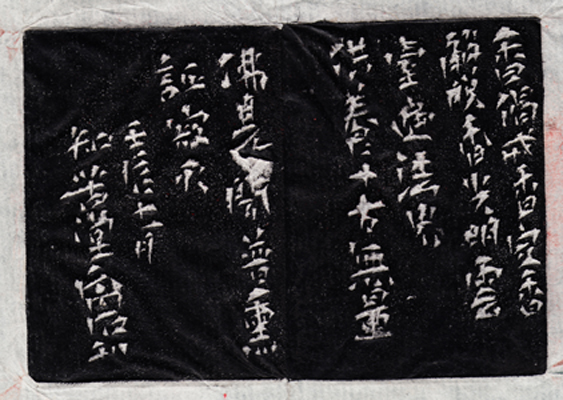 香偈戒香定香
解脫香光明雲
臺遍法界
供養十方無量
佛見聞普熏
証寂
十一月
堂